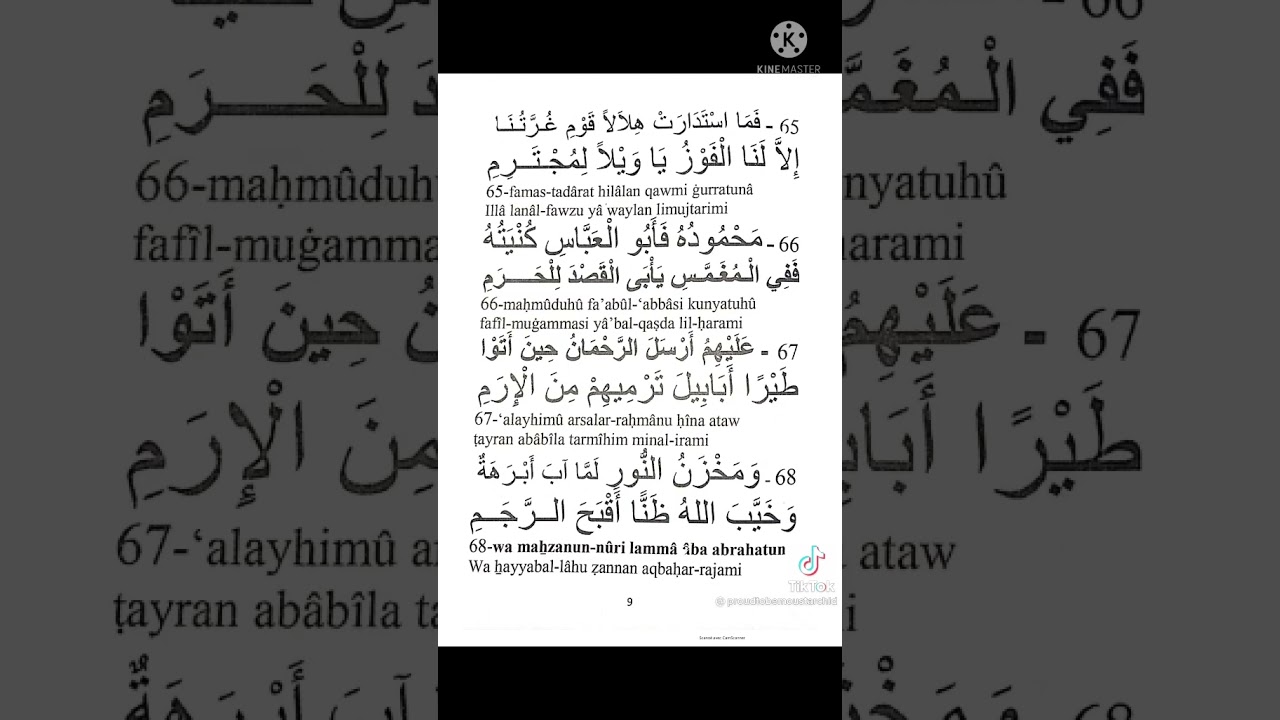 KINEMASTER
65 - فَمَا اسْتَدَارَتْ هِلاَلاً قَوْمِ غُرَّتُنَا
إِلاَّ لَنَا الْفَوْزُ يَا وَيْلاً لِمُجْتَرِمِ
65-famas-tadârat hilâlan qawmi ġurratunâ
Illâ lanâl-fawzu yâ waylan limujtarimi
66 - مَحْمُودُهُ فَأَبُو الْعَبَّاسِ كُنْيَتُهُ
فَفِي الْمُغَمَّسِ يَأْبَى الْقَصْدَ لِلْحَرَمِ
66-maḥmûduhû fa’abûl-‘abbâsi kunyatuhû
fafîl-muġammasi yâ’bal-qaṣda lil-ḥarami
67 - عَلَيْهِمُ أَرْسَلَ الرَّحْمَانُ حِينَ أَتَوْا
طَيْرًا أَبَابِيلَ تَرْمِيهِمْ مِنَ الْإِرَمِ
67-‘alayhimû arsalar-raḥmânu ḥîna ataw
ṭayran abâbîla tarmîhim minal-irami
68 - وَمَخْزَنُ النُّورِ لَمَّا آبَ أَبْرَهَةٌ
وَخَيَّبَ اللهُ ظَنًّا أَقْبَحَ الرَّجَمِ
68-wa maẖzanun-nûri lammâ âba abrahatun
Wa ẖayyabal-lâhu ẓannan aqbaḥar-rajami
9
TikTok
@ proudtobemoustarchid
Scanné avec CamScanner